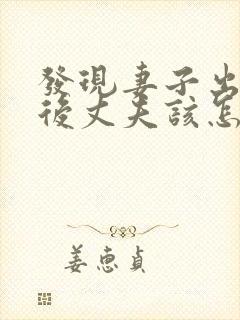 發現妻子出
後丈夫該怎
姜惠貞